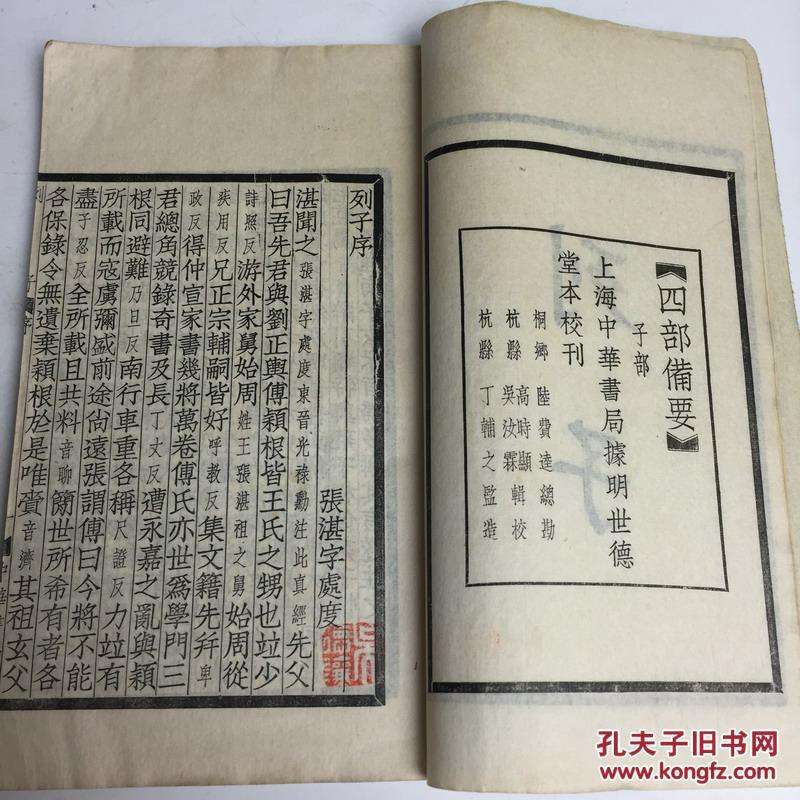 《四部備要》
子部
上海中華書局據明世德
堂本校刊
桐鄉 陸費逵 總勘
杭縣 高時顯 吳汝霖 輯校
杭縣 丁輔之 監造
列子序
張湛字處度
湛聞之張湛字處度東晉光祿勳注此真經先父
曰吾先君與劉正輿傅穎根皆王氏之甥也竝少
詩照反游外家舅始周姓王張湛祖之舅始周從
疾用反兄正宗輔嗣皆好呼教反集文籍先幷卑
政反得仲宣家書幾將萬卷傅氏亦世爲學門三
君總角競錄奇書及長丁丈反遭永嘉之亂與穎
根同避難乃旦反南行車重各稱尺證反力竝有
所載而寇虜彌盛前途尙遠張謂傅曰今將不能
盡子忍反全所載且共料音聊簡世所希有者各
各保錄令無遺棄穎根於是唯賷音濟其祖玄父
孔夫子旧书网
www.kongfz.com